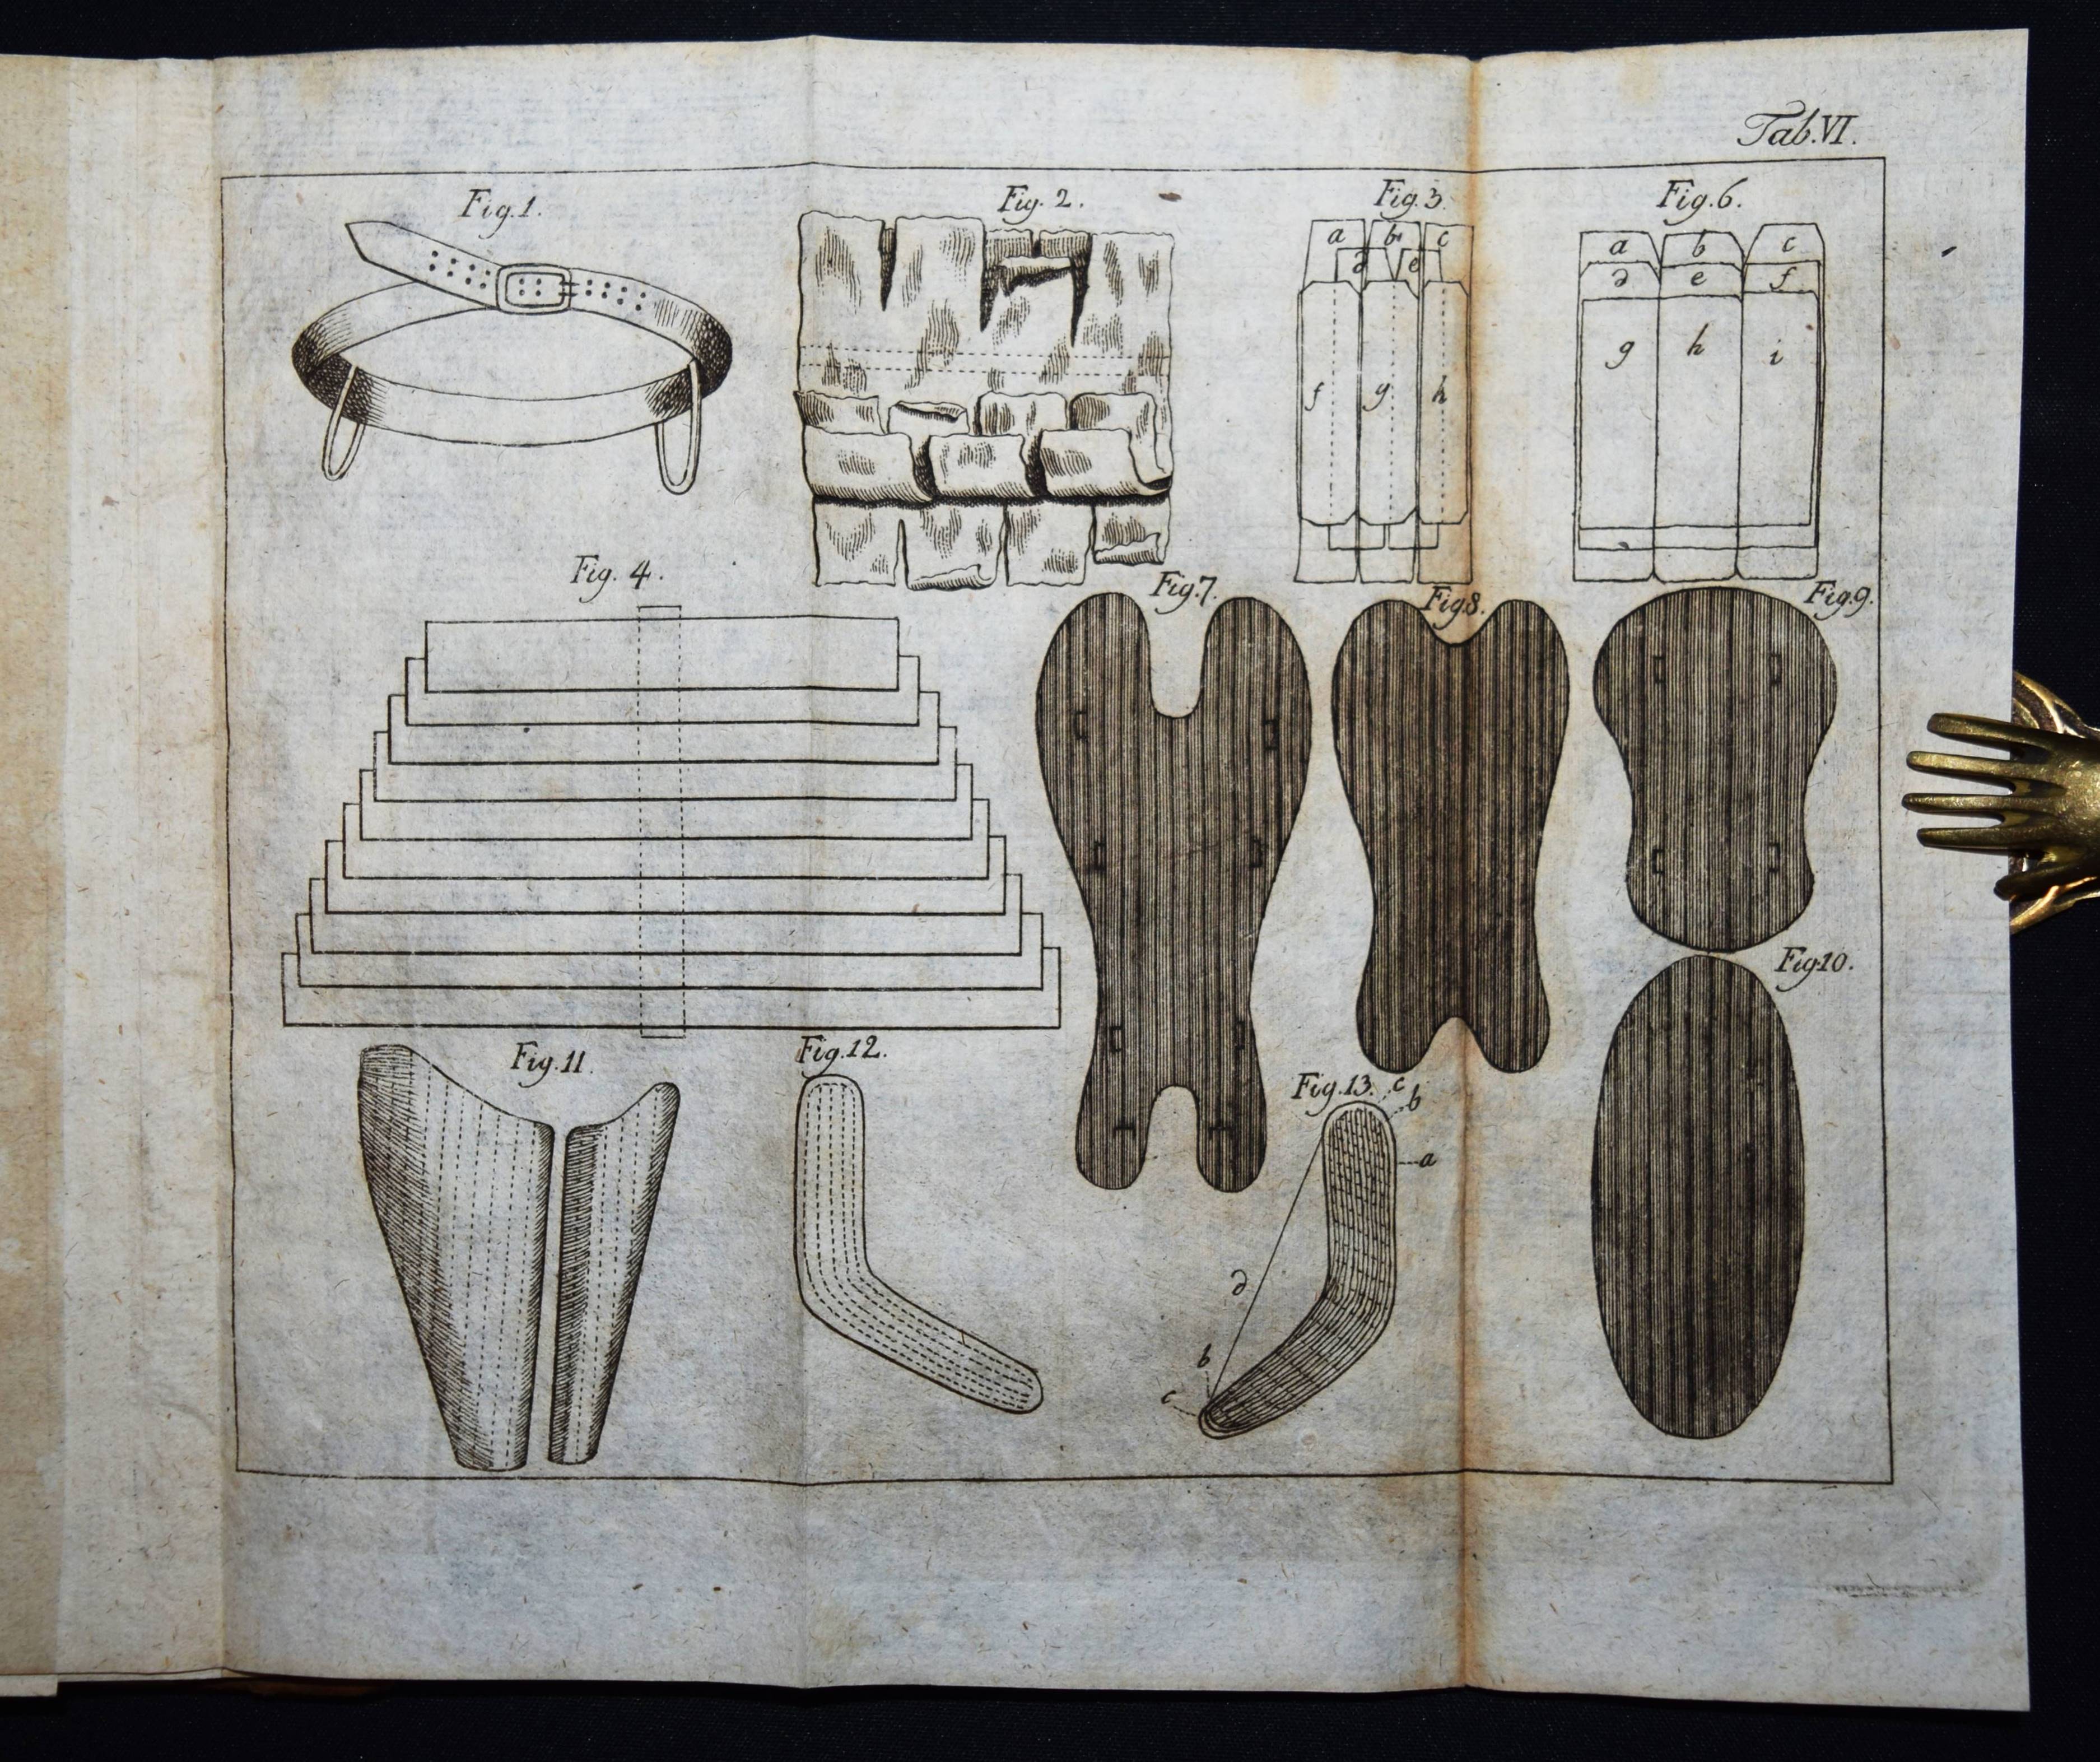 Tab.VI.
Fig.1.
Fig. 2.
Fig.3.
Fig.6.
a b c
d e
f g h
a b c
d e f
g h i
Fig. 4.
Fig.7.
Fig8.
Fig.9.
Fig10.
Fig.11.
Fig.12.
Fig.13.
c
b
a
d
b
c